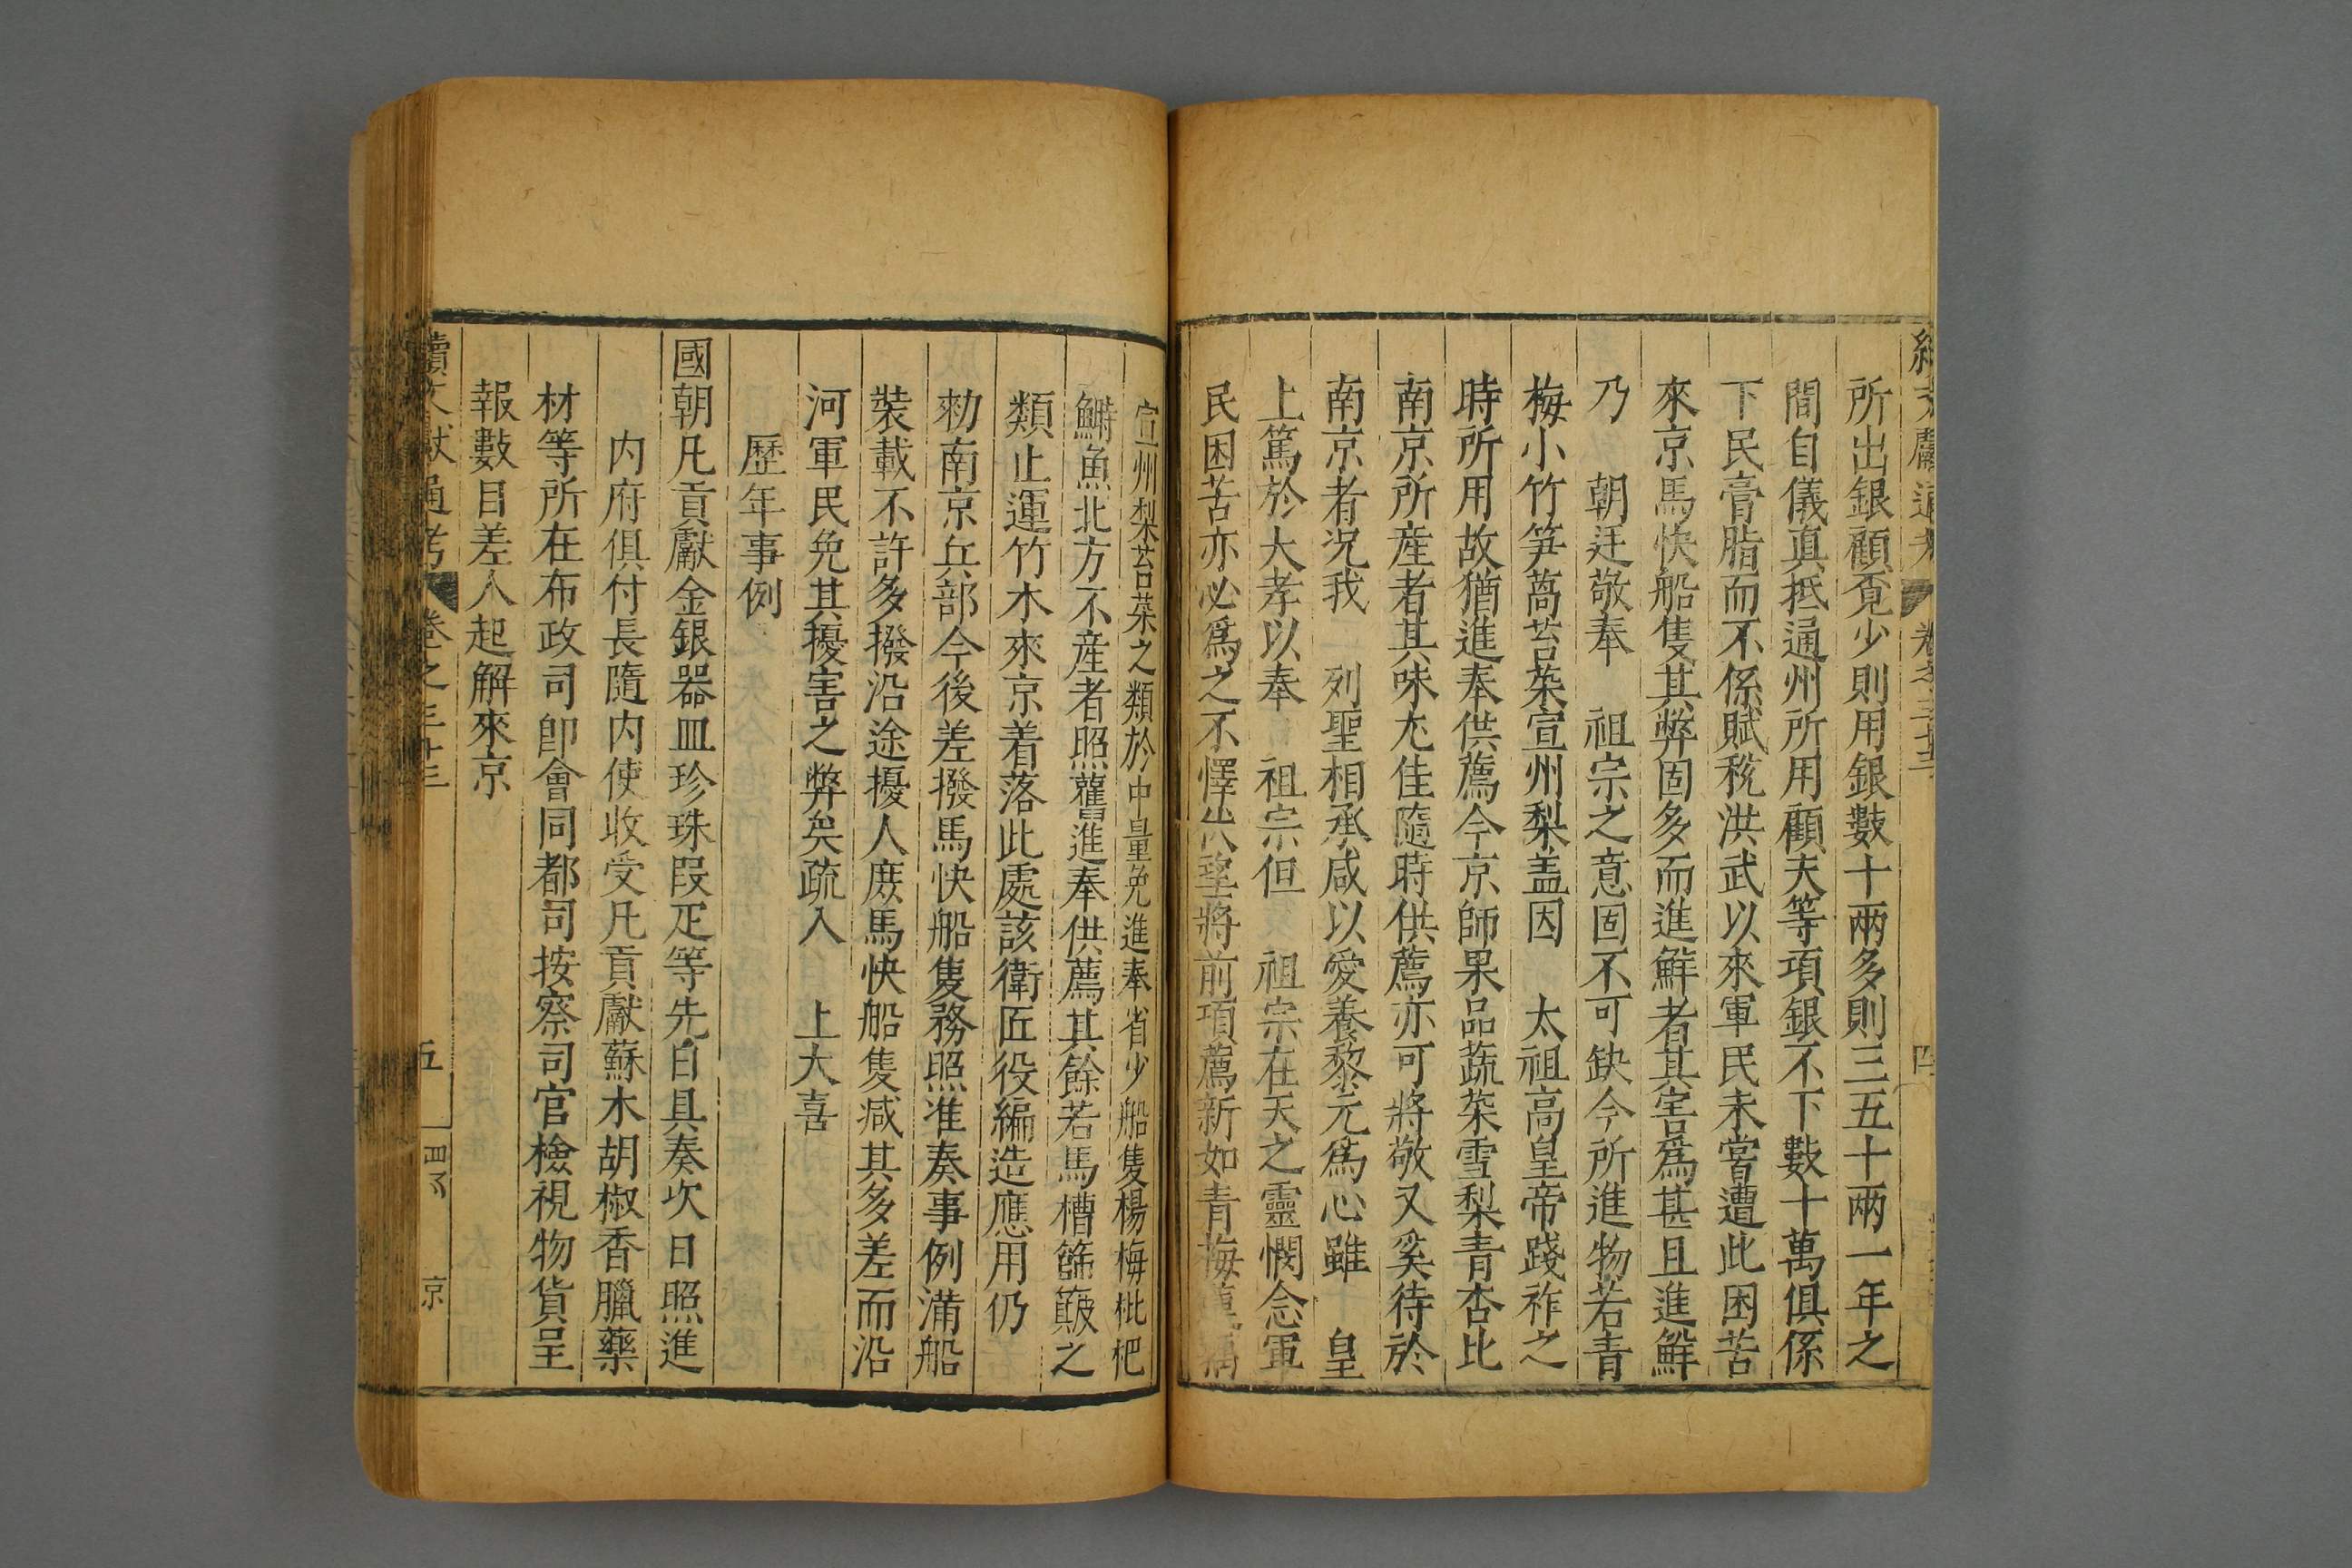 所出銀顧覔少則用銀數十兩多則三五十兩一年之
間自儀真抵通州所用顧夫等項銀不下數十萬俱係
下民膏脂而不係賦稅洪武以來軍民未嘗遭此困苦
來京馬快船隻其弊固多而進鮮者其害爲甚且進鮮
乃 朝廷敬奉 祖宗之意固不可缺今所進物若青
梅小竹笋蒿苔菜宣州梨盖因 太祖高皇帝踐祚之
時所用故猶進奉供薦今京師果品蔬菜雪梨青杏比
南京所産者其味尤佳隨時供薦亦可將敬又奚待於
南京者况我 列聖相承咸以愛養黎元爲心雖 皇
上篤於大孝以奉 祖宗但 祖宗在天之靈憫念軍
民困苦亦必爲之不懌伏望將前項薦新如青梅
宣州梨苔菜之類於中量免進奉省少船隻楊梅枇杷
鰣魚北方不産者照舊進奉供薦其餘若馬槽篩簸之
類止運竹木來京着落此處該衛匠役編造應用仍
勑南京兵部今後差撥馬快船隻務照准奏事例滿船
裝載不許多撥沿途擾人庶馬快船隻减其多差而沿
河軍民免其擾害之弊矣疏入 上大喜
歷年事例
國朝凡貢獻金銀器皿珍珠叚疋等先白具奏次日照進
内府俱付長隨内使收受凡貢獻蘇木胡椒香臘藥
材等所在布政司卽會同都司按察司官檢視物貨呈
報數目差人起解來京
續文獻通考 卷之三十三 五 京